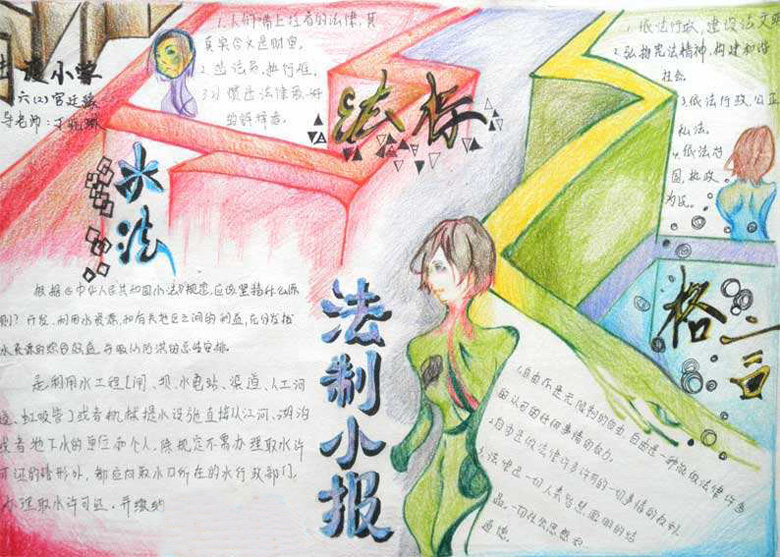 六(2)
1.人们嘴上挂着的法律,其
真实含义是财富。
法标
1.依法行政,建设法文明
2.弘扬宪法精神,构建和谐
社会
3.依法行政 公正
私法.
4.依法治
国,执政
为民。
水法
根据《中华人民共和国水法》规定,应该坚持什么原
则?开发、利用水资源,和有关地区之间的利益,充分发挥
水资源的综合效益,
是利用水工程(闸、坝、水电站、渠道、人工河
道、虹吸管)或者机械提水设施直接从江河、湖泊
或者地下水的单位和个人,除规定不需办理取水许
可证的情形外,都应向取水口所在的水行政部门
取水许可证,并缴纳
法制小报
格言
1.自由不是无限制的自由,自由是一种能做法律许可
的任何事情的权力。
2.自由是做法律所许可的一切事情的权利
3.法律是一切人类智慧聪明的结
晶,一切社会思想和
道德。